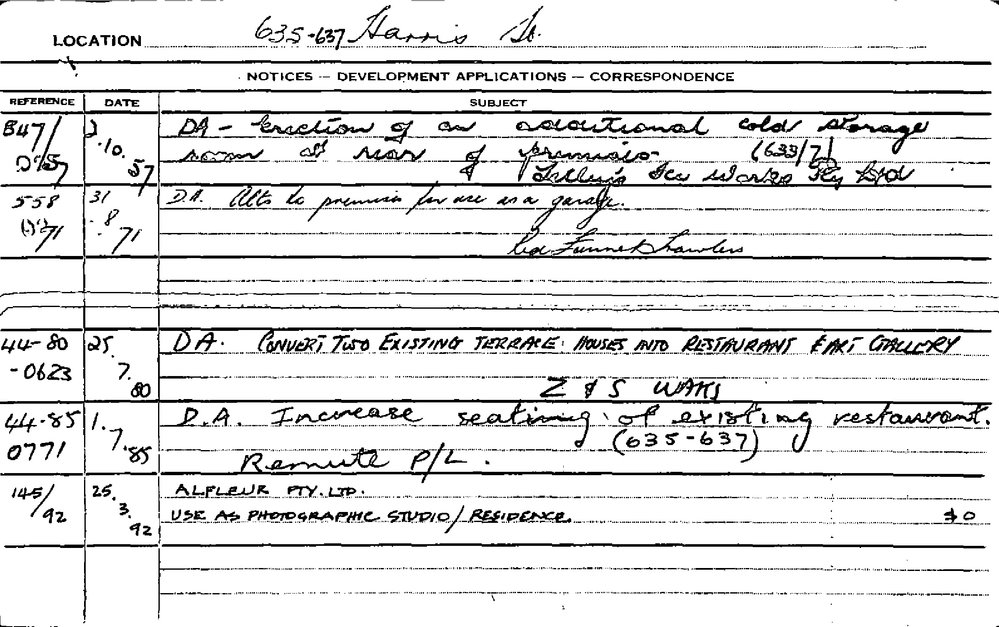 LOCATION 635-637 Harris St.
NOTICES — DEVELOPMENT APPLICATIONS — CORRESPONDENCE
REFERENCE DATE SUBJECT
847/ 2 DA - Erection of an additional cold storage
.10. room at rear of premises. (633/7)
57 57 Ice Works Pty Ltd
558 31 D.A. Alts to premises for use as a garage.
71 .8 71
44-80 25. D.A. CONVERT TWO EXISTING TERRACE HOUSES INTO RESTAURANT & ART GALLERY
-0623 7.
80 Z & S WAKS
44-85 1. D.A. Increase seating of existing restaurant.
0771 7. (635-637)
85 Remute P/L.
145/ 25. ALFLEUR PTY. LTD.
92 3. USE AS PHOTOGRAPHIC STUDIO/RESIDENCE. $0
92